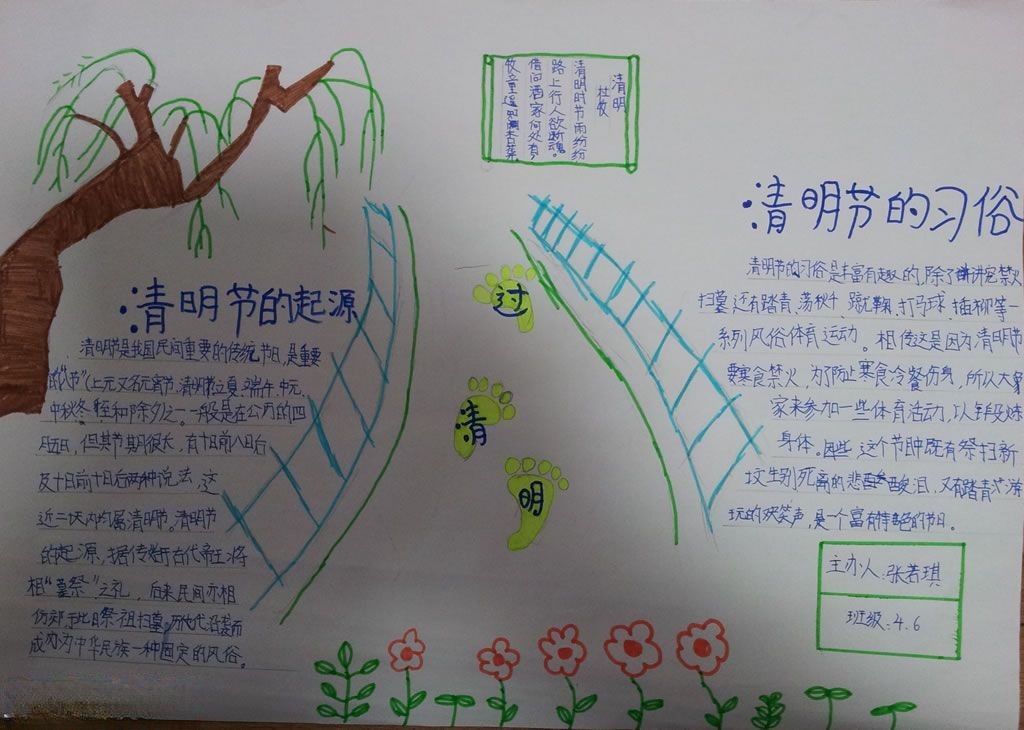 清明
杜牧
清明时节雨纷纷
路上行人欲断魂。
借问酒家何处有？
牧童遥
过
清
明
清明节的起源
清明节是我国民间重要的传统节日，是重要
的“八节”（上元又名元宵节、清明节、立夏、端午、中元、
中秋、冬至和除夕）之一。一般是在公历的四
月五日，但其节期很长，有十日前八日后
及十日前十日后两种说法，这
近二十天内均属清明节。清明节
的起源，据传始于古代帝王将
相“墓祭”之礼，后来民间亦相
仿效，于此日祭祖扫墓，历代沿袭而
成为中华民族一种固定的风俗。
清明节的习俗
清明节的习俗是丰富有趣的，除了讲究禁火、
扫墓，还有踏青、荡秋千、蹴鞠、打马球、插柳等一
系列风俗体育运动。相传这是因为清明节
要寒食禁火，为了防止寒食冷餐伤身，所以大
家来参加一些体育活动，以锻炼
身体。因此，这个节日中既有祭扫新
坟生别死离的悲酸泪，又有踏青游
玩的欢笑声，是一个富有特色的节日。
主办人：张若琪
班级：4.6